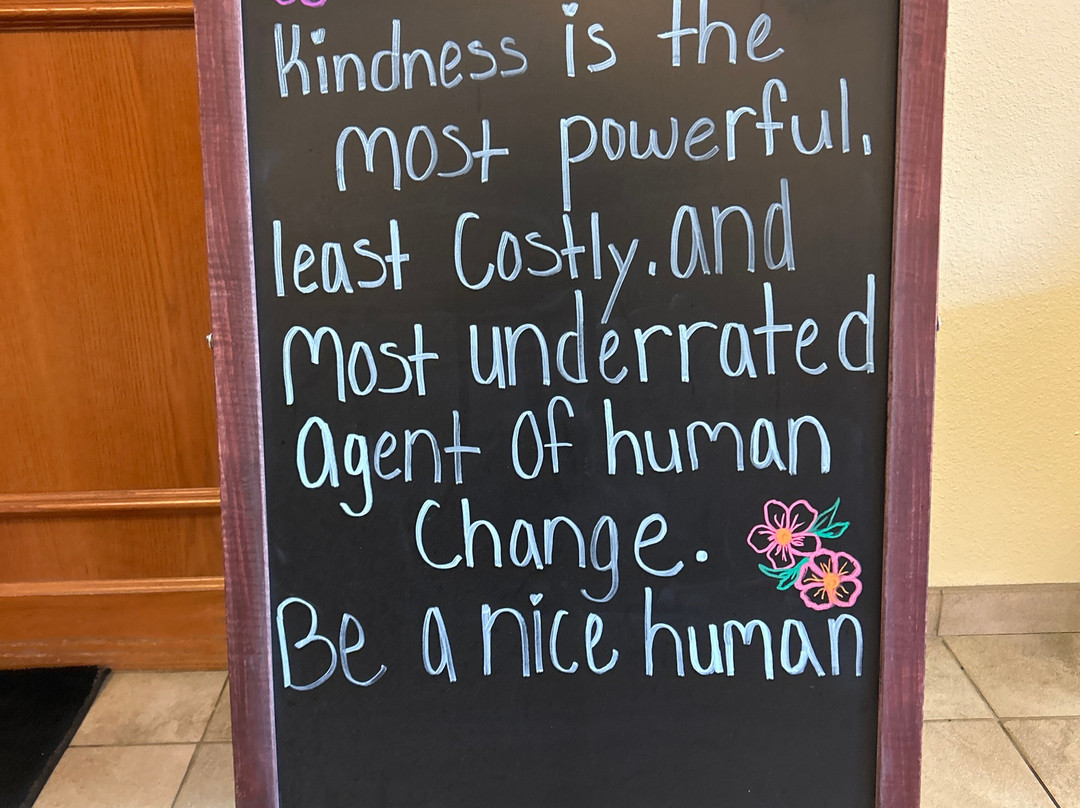 Kindness is the
most powerful,
least Costly, and
most underrated
agent of human
Change.
Be a nice human